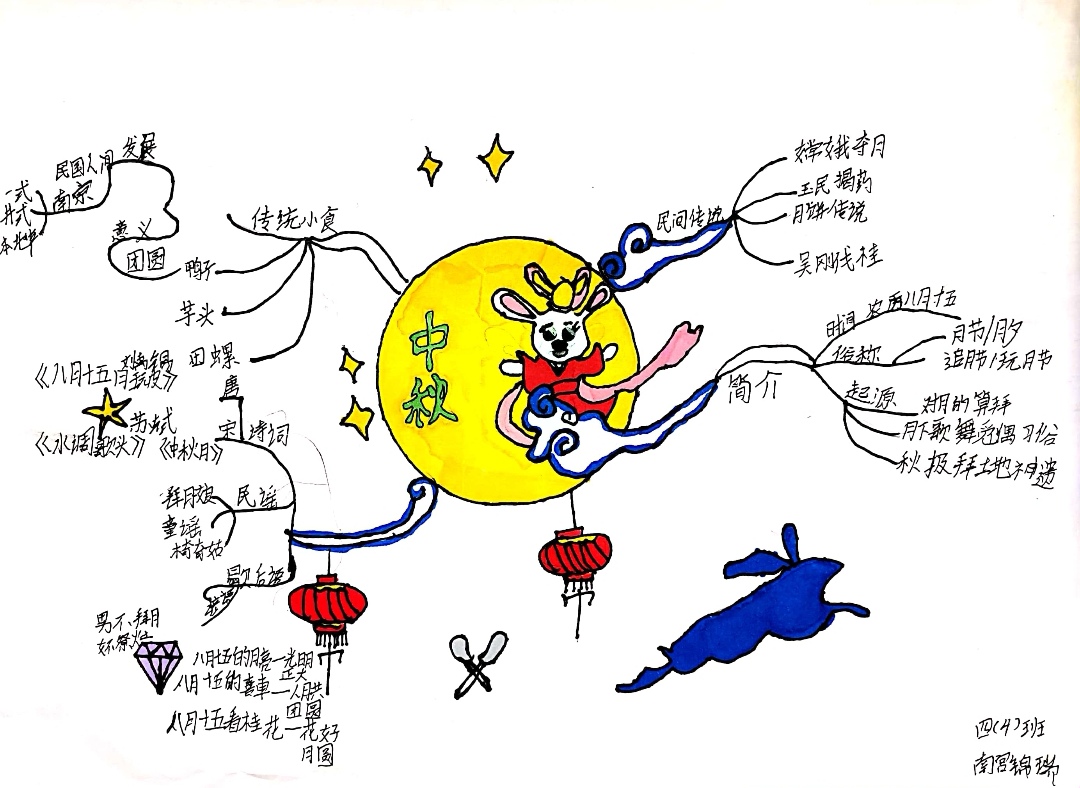 中秋
民间传说
嫦娥奔月
玉民揭药
月饼传说
吴刚伐桂
简介
时间
农历八月十五
俗称
月节/月夕
追月节/玩月节
起源
对月的算拜
月下歌舞近偶习俗
秋报拜土地神遗
传统小食
鸭子
芋头
田螺
意义
团圆
发展
民国人间
南京
诗词
唐
宋
《八月十五月夜》
苏轼
《水调歌头》
《中秋月》
民谣
拜月娘
童谣
椅奇姑
歇后语
男不拜月
女不祭灶
八月十五的月亮一光明
正大
八月十五的
团圆
八月十五看桂花一花好
月圆
四(4)班
南宫锦瑞